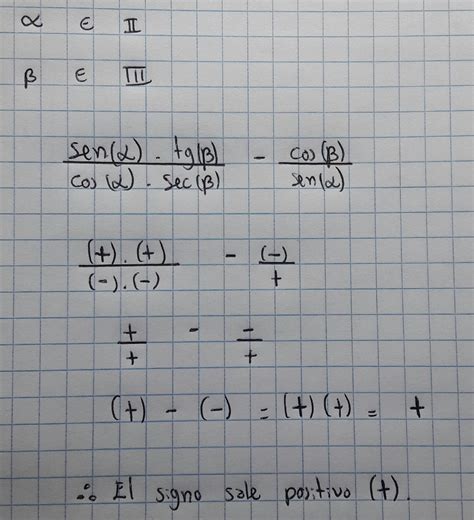 α ∈ II
β ∈ III
sen(α) . tg(β) / cos(α) . sec(β) - cos(β) / sen(α)
(+) . (+) / (-) . (-) - (-) / +
+ / + - - / +
(+) - (-) = (+) (+) = +
∴ El signo sale positivo (+).